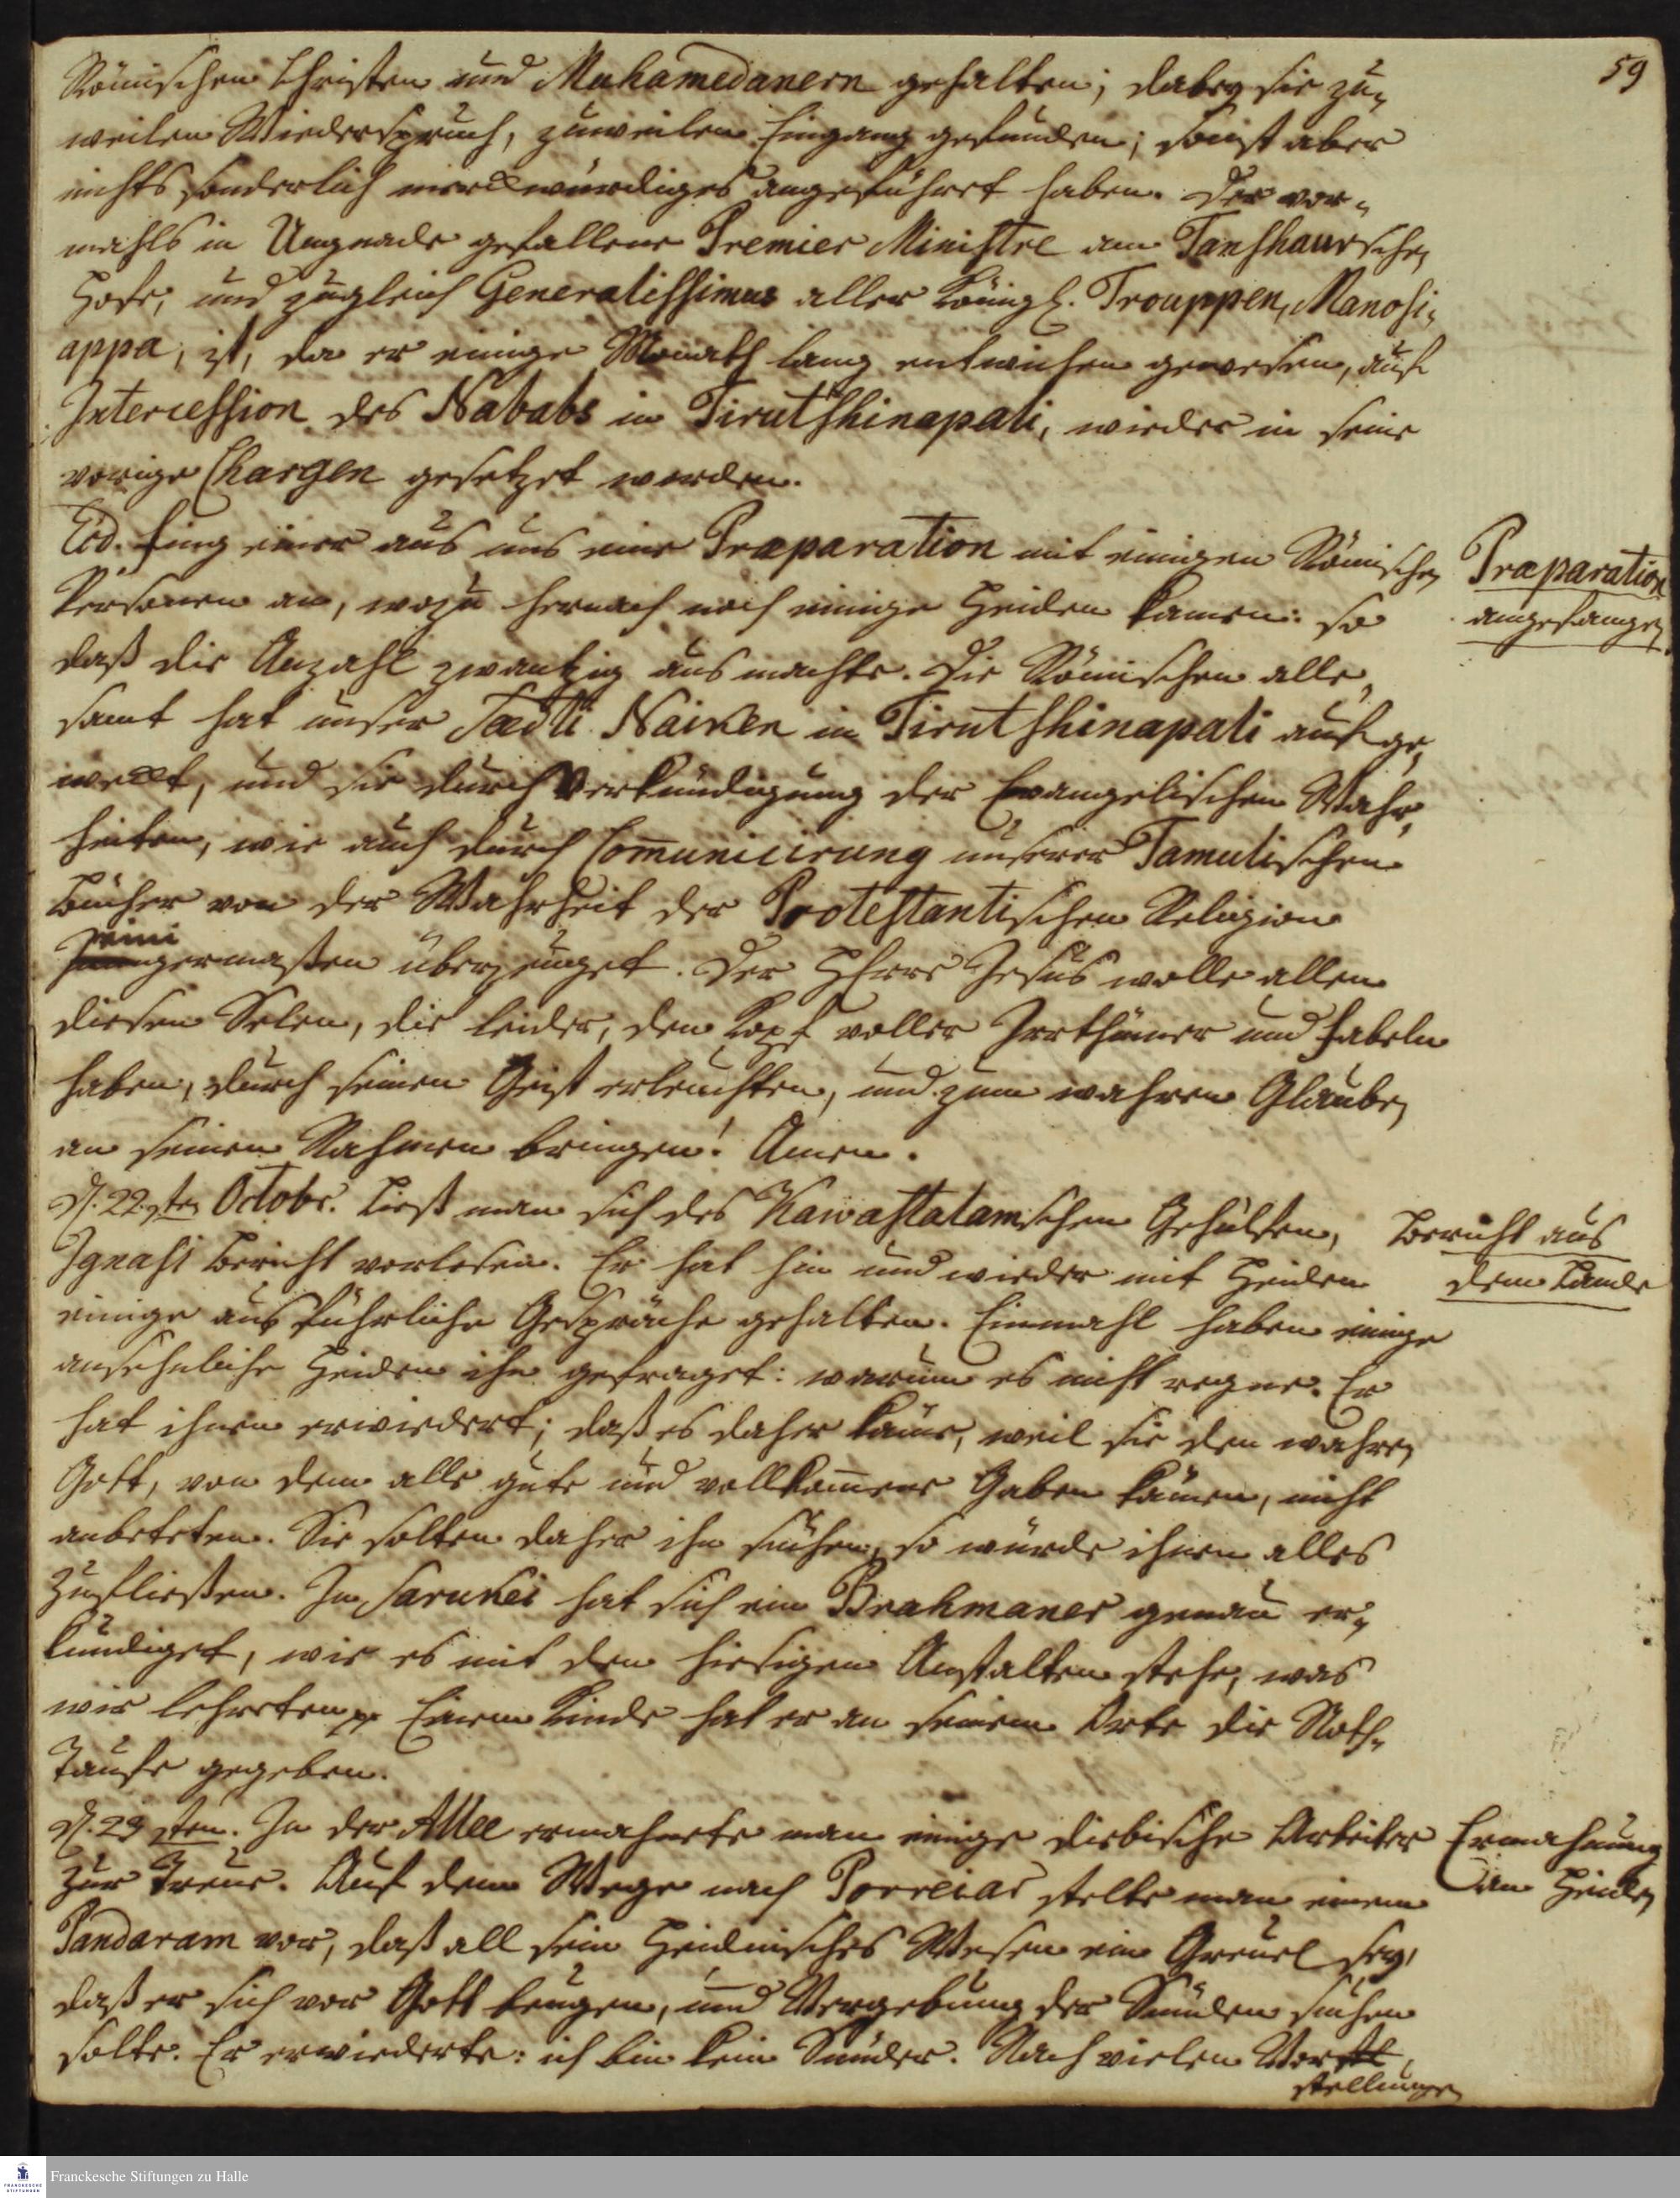 59
Römischen Christen und Muhamedanern gehalten; dabey sie zu-
weilen Wiederspruch, zuweilen Eingang gefunden; sonst aber
nichts sonderlich merckwürdiges angeführet haben. Der vor-
mahls in Ungnade gefallene Premier Ministre am Tanshaurschen
Hofe, und zugleich Generalissimus aller Königl. Trouppen, Manosi-
appa, ist, da er einige Monath lang entwichen gewesen, auf
Intercession des Nababs in Tirutshinapali, wieder in seine
vorige Chargen gesetzet worden.
Eod. fing einer aus uns eine Præparation mit einigen Römischen
Personen an, wozu hernach noch einige Heiden kamen: so
daß die Anzahl zwantzig ausmachte. Die Römischen alle-
samt hat unser Sadti Naiken in Tirutshinapali aufge-
weckt, und sie durch Verkündigung der Evangelischen Wahr-
heiten, wie auch durch Com̄unicirung unserer Tamulischen
Bücher von der Wahrheit der Protestantischen Religion
einigermaßen überzeuget. Der HErr Jesus wolle allen
diesen Selen, die leider, den Kopf voller Irrthümer und Fabeln
haben, durch seinen Geist erleuchten, und zum wahren Glauben
an seinen Nahmen bringen! Amen.
Præparation
angefangen
D. 22sten Octobr. Ließ man sich des Kawastalamschen Gehülfen,
Ignasi Bericht vorlesen. Er hat hin und wieder mit Heiden
einige ausführliche Gespräche gehalten. Einmahl haben einige
ansehnliche Heiden ihn gefraget: warum es nicht regne. Er
hat ihnen erwiedert; daß es daher käme, weil sie den wahren
Gott, von dem alle gute und vollkom̄ene Gaben kämen, nicht
anbeteten. Sie solten daher ihn suchen, so würde ihnen alles
zufließen. In Sarukei hat sich ein Brahmaner genau er-
kundiget, wie es mit den hiesigen Anstalten stehe, was
wir lehreten p. Einem Kinde hat er an seinem Orte die Noth-
Taufe gegeben.
Bericht aus
dem Lande
D. 23sten. In der Allee ermahnete man einige diebische Arbeiter
zur Treue. Auf dem Wege nach Porreiar stelte man einem
Pandaram vor, daß all sein Heidnisches Wesen ein Greuel sey,
daß er sich vor Gott beugen, und Vergebung der Sünden suchen
solte. Er erwiederte: ich bin kein Sünder. Nach vielen Vor-
stellungen
Ermahnung
an Heiden
Franckesche Stiftungen zu Halle